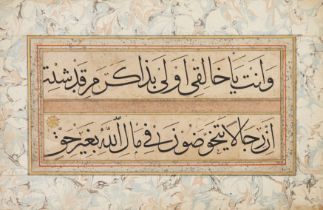 وانت يا خالقي اولى بذا كرم قد شئته
ان رجالا يتخوضون في مال الله بغير حق